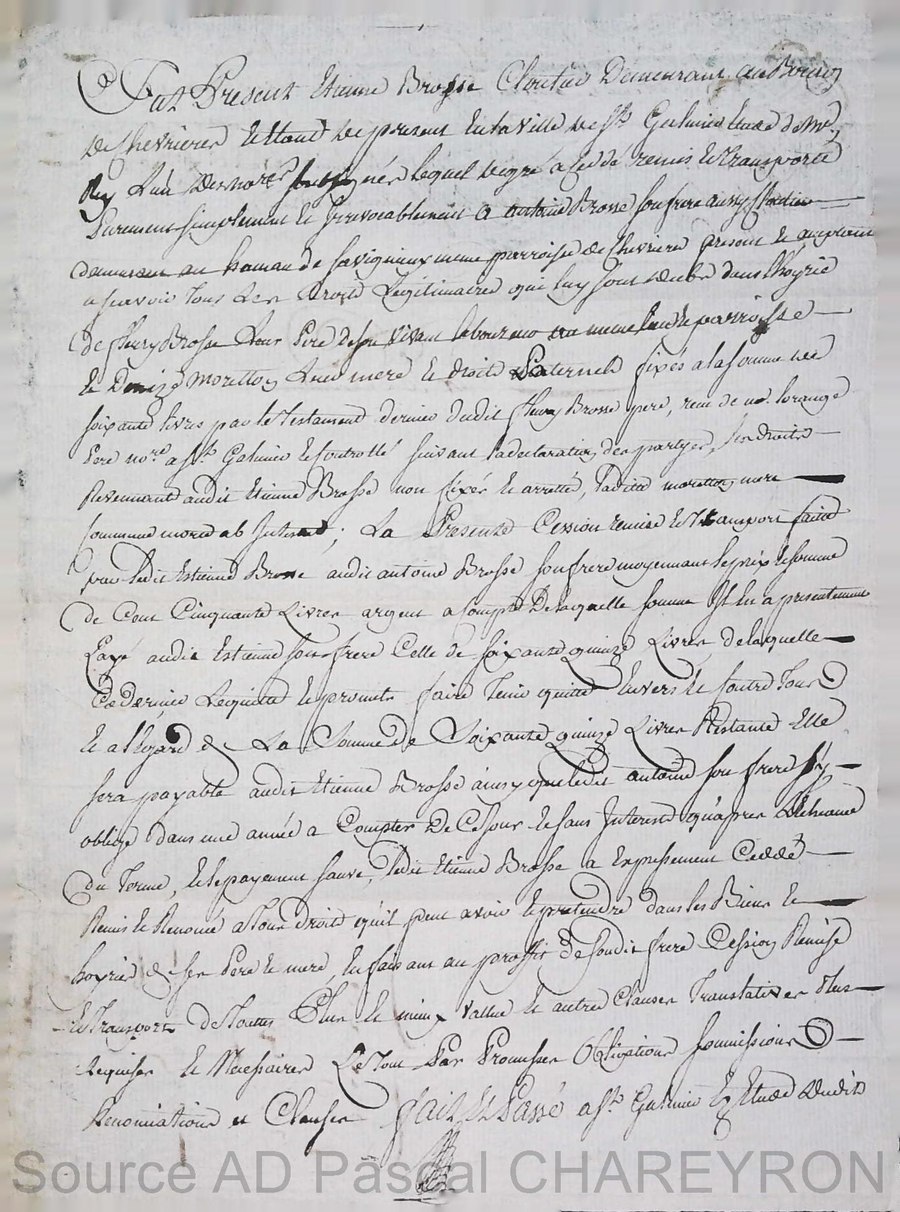 Fut Present Etienne Brosse Cloutier Demeurant au Bourg
De Chevrieres Estant de present en la ville de St. Galmier Etude de Me.
Rey L'un des no.res soussigné lequel de gré a cedé remis et transporté
Purement simplement et irrevocablement a antoine Brosse son frere aussy Cloutier
demeurant au hameau de savigneux meme parroisse de Chevriere present et acceptant
a scavoir tous les droits Legitimaires que luy sont deubs dans l'hoyrie
de fleury Brosse Leur Pere de son vivant laboureur au meme lieu de parroisse
et Denize Moretton Leur mere le droit Paternel fixés a la somme de
soixante livres par le testament dernier dudit fleury Brosse pere, receu de me. lorange
Pere no.re a St. Galmier et controllé suivant la declaration des partyes, les droits
Revennant audit Etienne Brosse non fixés et arretté, ladite moretton mere
comme morte ab Intestat; La Presente Cession remise et transport faitte
par ledit Estienne Brosse audit antoine Brosse son frere moyennant le prix et somme
de Cent Cinquante Livres argent a Compte De laquelle somme Il en a presentement
Payé audit Estienne son frere Celle de soixante quinze Livres de laquelle
Ce dernier L'equitte et promets faire Tenir quitte Envers et Contre Tous
Et a l'Egard de La Somme de Soixante quinze Livres Restante Elle
sera payable audit Etienne Brosse ainsy que ledit antoine son frere s'y
oblige dans une année a Compter De Ce Jour et sans Interest qu'apres L'Echeance
du Terme, et le payement sauve, ledit Etienne Brosse a Expressement Ceddé
Remis et Renoncé a Tour droit qu'il peut avoir et pretendre dans les Biens et
hoyrie de ses Pere et mere, En faisant au proffit de sondit frere Cession Remise
et Transport De Toutes Plus et mieux vallue et autre Clauses Translatives Plus
Requises et Necessaires Le Tout Par Promesses Obligations soumissions
Renonciations et Clauses fait Et Passé a St. Galmier Etude dudit
Source AD Pascal CHAREYRON